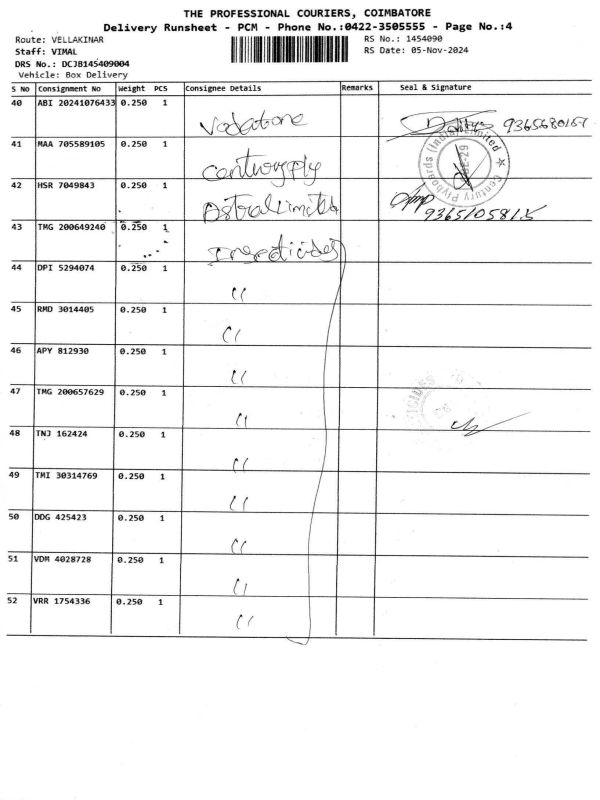 THE PROFESSIONAL COURIERS, COIMBATORE
Delivery Runsheet - PCM - Phone No.:0422-3505555 - Page No.:4
Route: VELLAKINAR RS No.: 1454090
Staff: VIMAL RS Date: 05-Nov-2024
DRS No.: DCJB145409004
Vehicle: Box Delivery
S No Consignment No Weight PCS Consignee Details Remarks Seal & Signature
40 ABI 20241076433 0.250 1
Vodafone 9365680157
41 MAA 705589105 0.250 1
Centuryply
Century Plyboards (India) Limited
42 HSR 7049843 0.250 1
Astral Limited 9365105815
43 TMG 200649240 0.250 1
Insecticides
44 DPI 5294074 0.250 1
11
45 RMD 3014405 0.250 1
11
46 APY 812930 0.250 1
11
47 TMG 200657629 0.250 1
11
48 TNJ 162424 0.250 1
11
49 TMI 30314769 0.250 1
11
50 DDG 425423 0.250 1
11
51 VDM 4028728 0.250 1
11
52 VRR 1754336 0.250 1
11